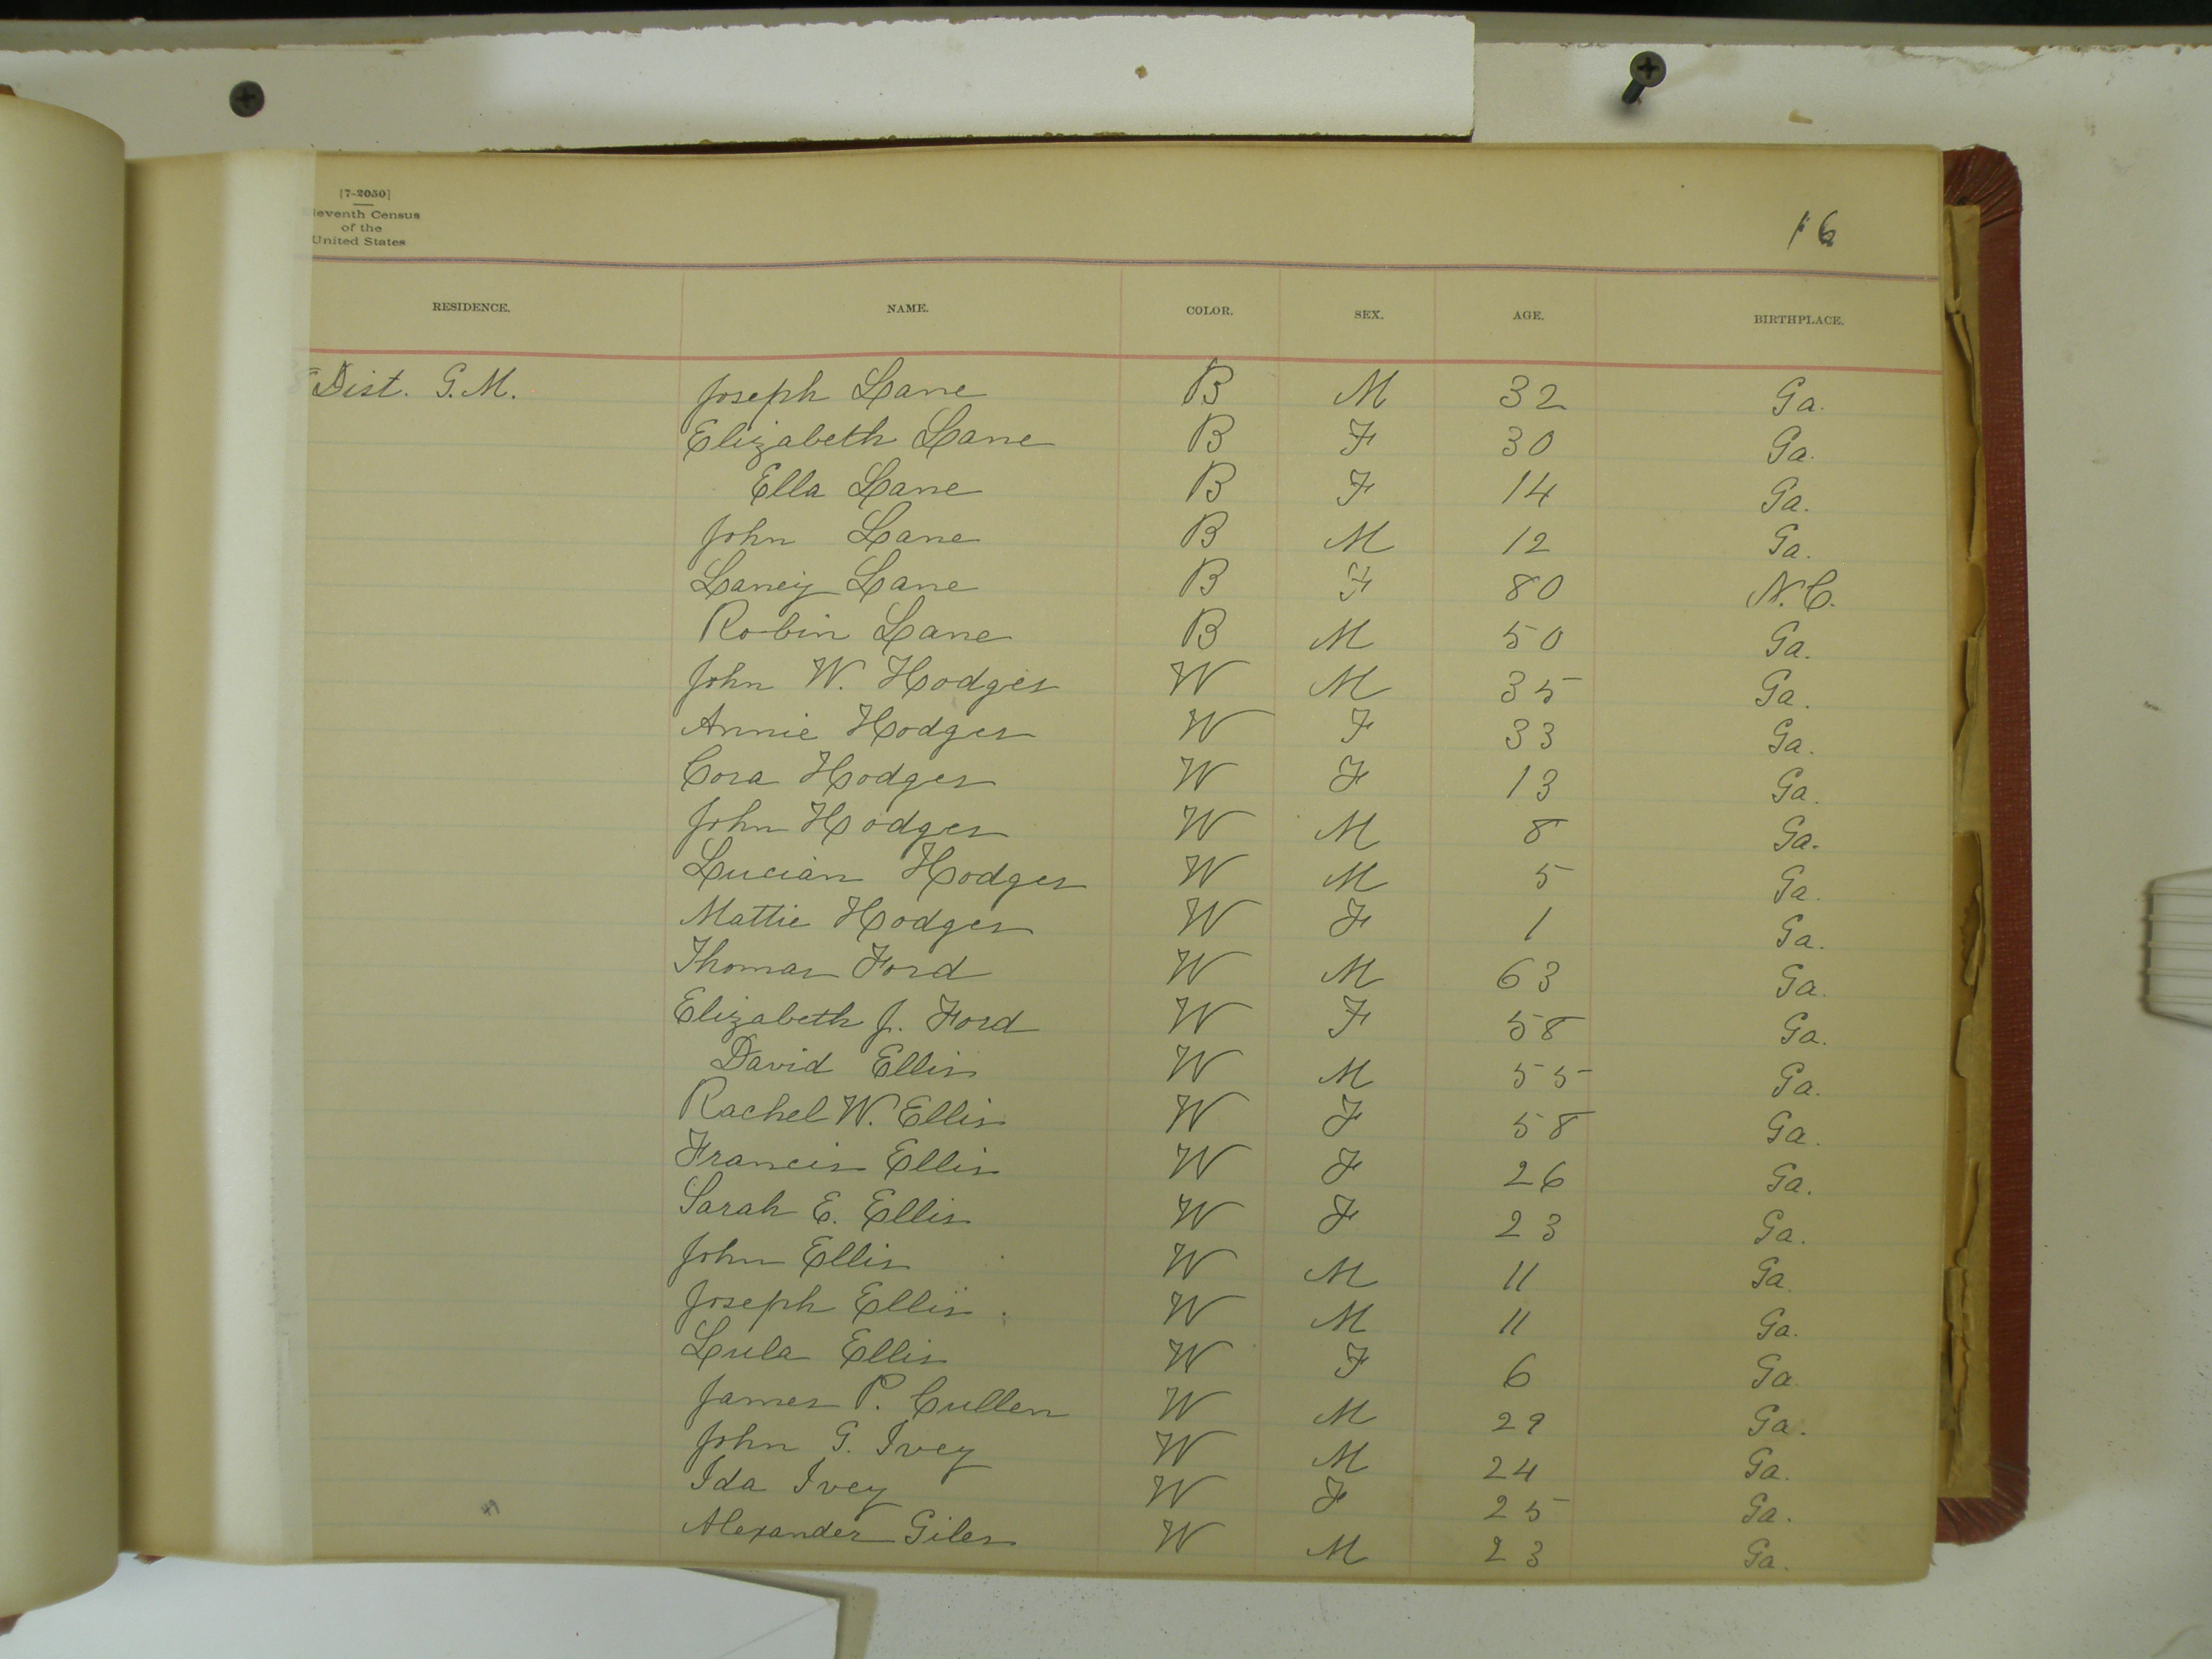 [7-2050]
leventh Census
of the
United States
16
RESIDENCE. NAME. COLOR. SEX. AGE. BIRTHPLACE.
Dist. G.M. Joseph Lane B M 32 Ga.
Elizabeth Lane B F 30 Ga.
Ella Lane B F 14 Ga.
John Lane B M 12 Ga.
Laney Lane B F 80 N.C.
Robin Lane B M 50 Ga.
John W. Hodges W M 35 Ga.
Annie Hodges W F 33 Ga.
Cora Hodges W F 13 Ga.
John Hodges W M 8 Ga.
Lucian Hodges W M 5 Ga.
Mattie Hodges W F 1 Ga.
Thomas Ford W M 63 Ga.
Elizabeth J. Ford W F 58 Ga.
David Ellis W M 55 Ga.
Rachel W. Ellis W F 58 Ga.
Francis Ellis W F 26 Ga.
Sarah E. Ellis W F 23 Ga.
John Ellis W M 11 Ga.
Joseph Ellis W M 11 Ga.
Lula Ellis W F 6 Ga.
James P. Cullen W M 29 Ga.
John G. Ivey W M 24 Ga.
Ida Ivey W F 25 Ga.
Alexander Giles W M 23 Ga.